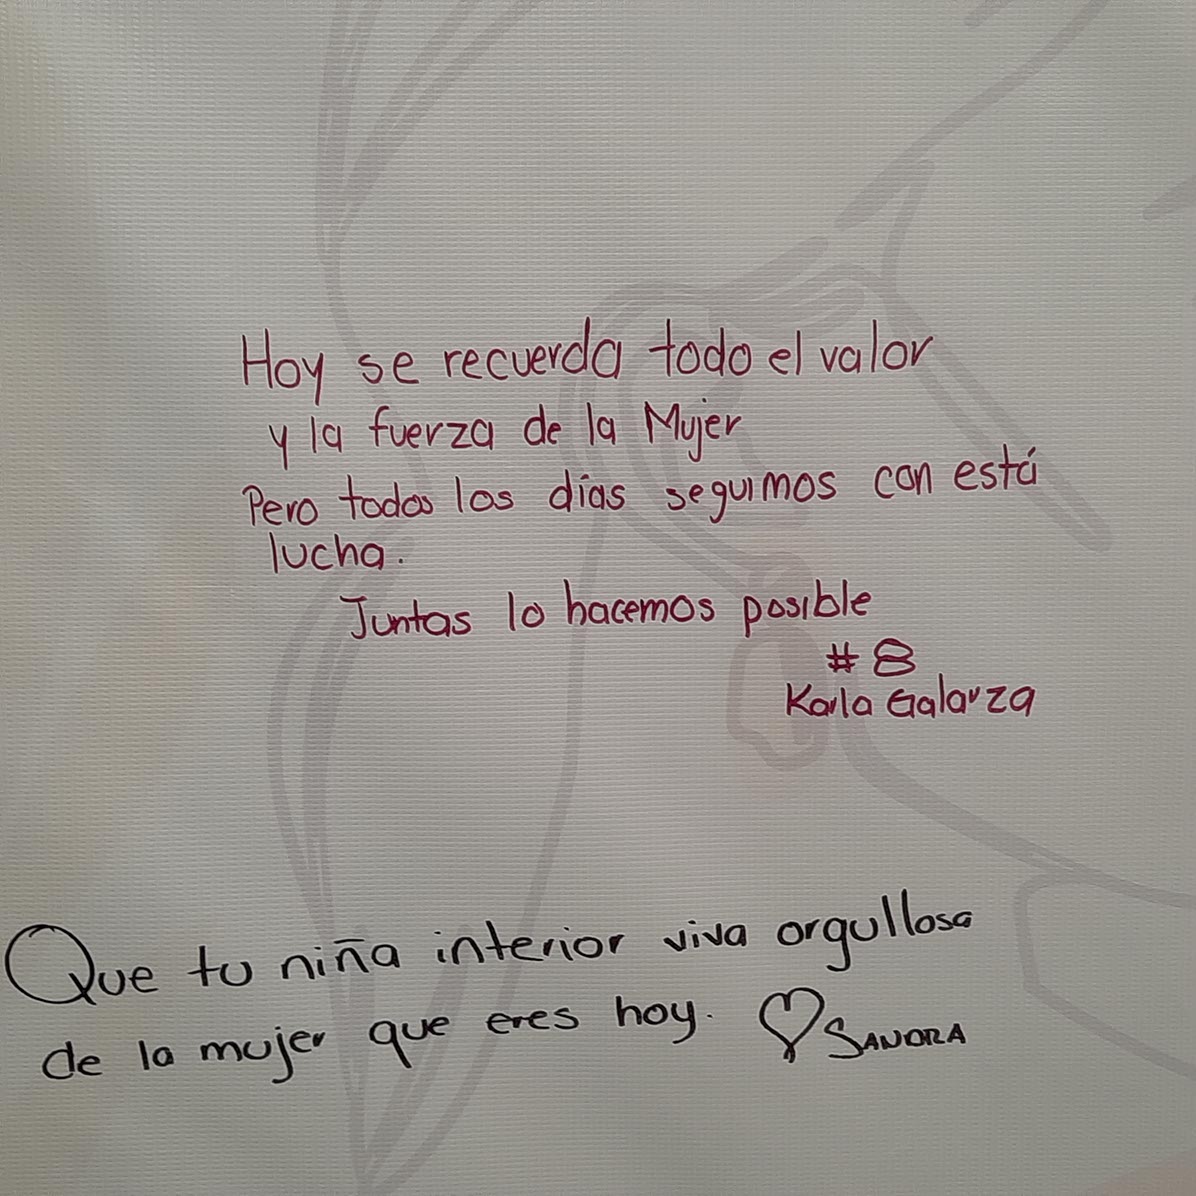 Hoy se recuerda todo el valor
y la fuerza de la Mujer
Pero todos los días seguimos con está
lucha.
Juntas lo hacemos posible
#8
Karla Galarza
Que tu niña interior viva orgullosa
de la mujer que eres hoy. SANDRA